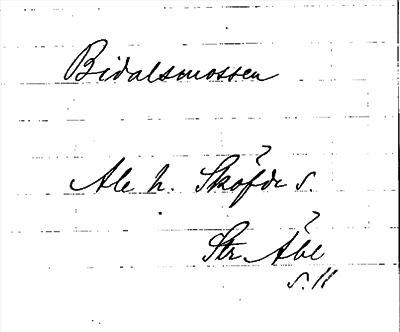 Bidalsmossen
?
Ale h. Sköfde s.
?
Str Åbl
s. 11